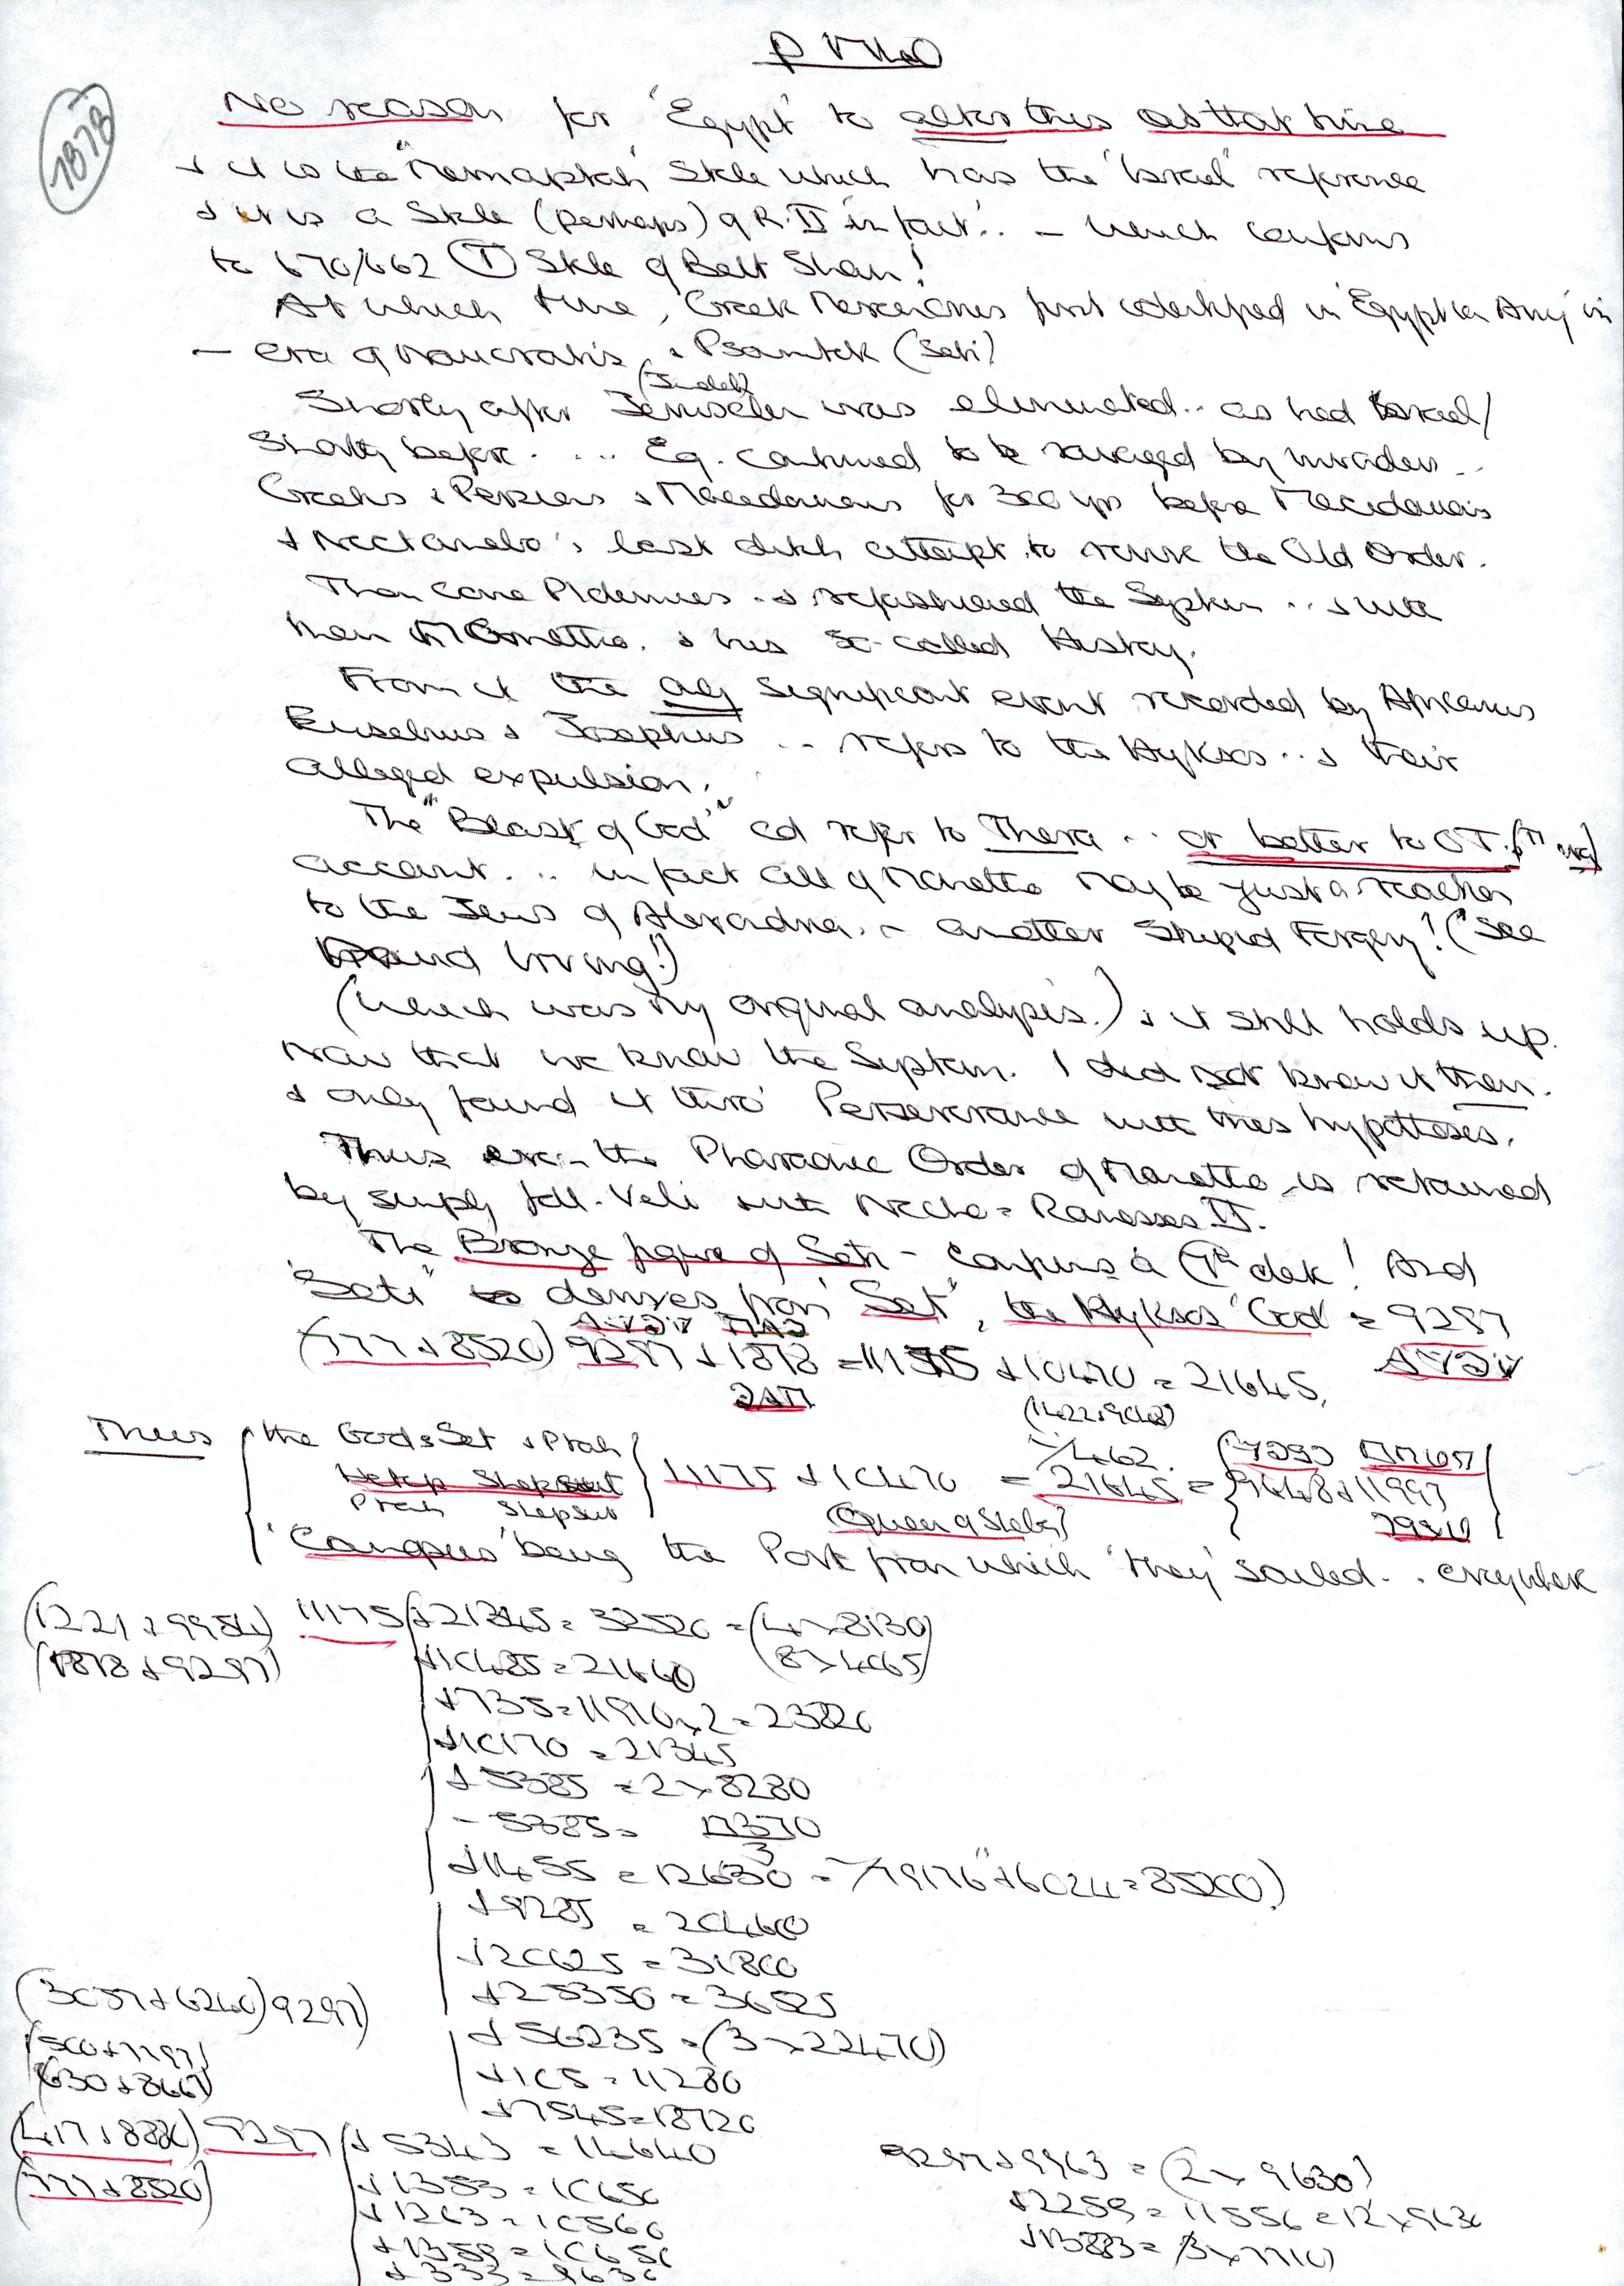 1878
No reason for 'Egypt' to alter this at that time
+ it is the "Mernaptah' Stele which has the 'Israel' reference
+ it is a Stele (perhaps) of R.II in fact'.. – which conforms
to 670/662 (T) Stele of Beth Shan!
At which time, Greek Mercenaries first in Egyptian Army in
– era of Naucratis, & Psamtek (Seti)
(Judah)
Shortly after Jerusalem was eliminated.. as had Israel/
Shortly before. ... Eg. continued to be ravaged by invaders..
Greeks & Persians & Macedonians for 300 yrs before Macedonians
+ Nectanebo's last ditch attempt to revive the Old Order.
Then came Ptolemies .. & refashioned the System .. & with
them Manetho. & his so-called History.
From it the only significant event recorded by Africanus
Eusebius & Josephus .. refers to the Hyksos .. & their
alleged expulsion.
The "Blast of God" cd refer to Thera .. or better to OT.
account... in fact all of Manetho may be just a reaction
to the Jews of Alexandria. – another Stupid Forgery! ("See
David Irving!)
(which was my original analysis.) & it still holds up.
Now that we know the System. I did not know it then.
& only found it thro' Perseverance with this hypothesis.
Thus even the Pharaonic Order of Manetho is retained
by simply foll. Veli with Necho = Ramesses II.
The Bronze figure of Seti – confirms a date! And
'Seti" derives from "Set", the Hyksos 'God' = 9297
(777+8520) 9297 + 1878 = 11175 + 10470 = 21645.
(1422+9048)
Thus the Gods Set & Ptah
Hetep Shepsut
Ptah Shepsut
11175 + 10470 = 21645 = 9648 + 11997
(Queen of Sheba)
'Canopus' being the Port from which 'they' sailed .. everywhere
(1221+9954) 11175 + 21345 = 32520 = (4×8130)
(1878+9297) + 10485 = 21660 (8×4065)
+ 735 = 11910 × 2 = 23820
+ 10170 = 21345
+ 5385 = 2 × 8280
- 5385 = 17370
3
+ 1455 = 12630 = 79176 + 6024 = 85200)
+ 9285 = 20460
+ 20625 = 31800
+ 25350 = 36525
(3057+6240) 9297)
+ 56235 = (3 × 22470)
(630+8667)
+ 105 = 11280
+ 7545 = 18720
(417+8880) 9297 + 5343 = 14640
(777+8520)
+ 1353 = 10650
+ 1263 = 10560
+ 1359 = 10656
+ 333 = 9630
9297 + 9963 = (2 × 9630)
+ 2259 = 11556 = 12 × 963
+ 13833 = 3 × 7710